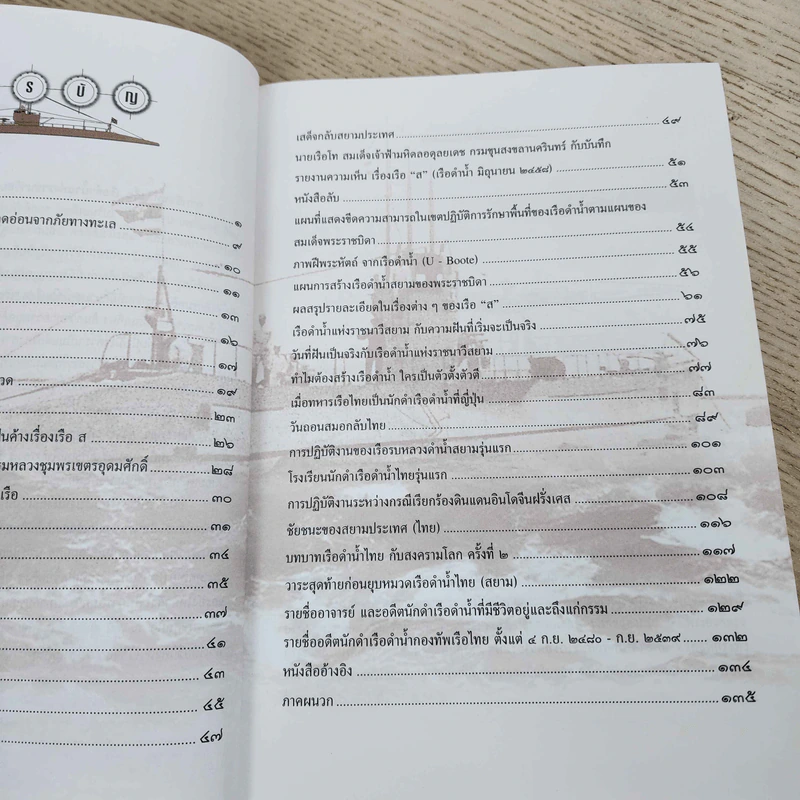 ร บั ญ
๑
ดอ่อนจากภัยทางทะเล
๙
๑๐
๑๑
๑๓
๑๖
๑๗
วด ๑๙
๒๓
ป็นค้างเรื่องเรือ ส ๒๖
รมหลวงชุมพรเขตรอุดมศักดิ์ ๒๘
เรือ ๓๐
๓๑
๓๔
๓๕
๓๗
๔๑
๔๓
๔๕
๔๗
เสด็จกลับสยามประเทศ ๔๙
นายเรือโท สมเด็จเจ้าฟ้ามหิดลอดุลยเดช กรมขุนสงขลานครินทร์ กับบันทึก
รายงานความเห็น เรื่องเรือ “ส” (เรือดำน้ำ มิถุนายน ๒๔๕๘) ๕๑
หนังสือลับ ๕๓
แผนที่แสดงขีดความสามารถในเขตปฏิบัติการรักษาพื้นที่ของเรือดำน้ำตามแผนของ
สมเด็จพระราชบิดา ๕๔
ภาพฝีพระหัตถ์ จากเรือดำน้ำ (U - Boote) ๕๕
แผนการสร้างเรือดำน้ำสยามของพระราชบิดา ๕๖
ผลสรุปรายละเอียดในเรื่องต่าง ๆ ของเรือ “ส” ๖๑
เรือดำน้ำแห่งราชนาวีสยาม กับความฝันที่เริ่มจะเป็นจริง ๗๕
วันที่ฝันเป็นจริงกับเรือดำน้ำแห่งราชนาวีสยาม ๗๖
ทำไมต้องสร้างเรือดำน้ำ ใครเป็นตัวตั้งตัวตี ๗๗
เมื่อทหารเรือไทยเป็นนักดำเรือดำน้ำที่ญี่ปุ่น ๘๓
วันถอนสมอกลับไทย ๘๙
การปฏิบัติงานของเรือรบหลวงดำน้ำสยามรุ่นแรก ๑๐๑
โรงเรียนนักดำเรือดำน้ำไทยรุ่นแรก ๑๐๓
การปฏิบัติงานระหว่างกรณีเรียกร้องดินแดนอินโดจีนฝรั่งเศส ๑๐๘
ชัยชนะของสยามประเทศ (ไทย) ๑๑๖
บทบาทเรือดำน้ำไทย กับสงครามโลก ครั้งที่ ๒ ๑๑๗
วาระสุดท้ายก่อนยุบหมวดเรือดำน้ำไทย (สยาม) ๑๒๒
รายชื่ออาจารย์ และอดีตนักดำเรือดำน้ำที่มีชีวิตอยู่และถึงแก่กรรม ๑๒๙
รายชื่ออดีตนักดำเรือดำน้ำกองทัพเรือไทย ตั้งแต่ ๔ ก.ย. ๒๔๘๐ - ก.ย. ๒๕๓๙ ๑๓๒
หนังสืออ้างอิง ๑๓๔
ภาคผนวก ๑๓๕